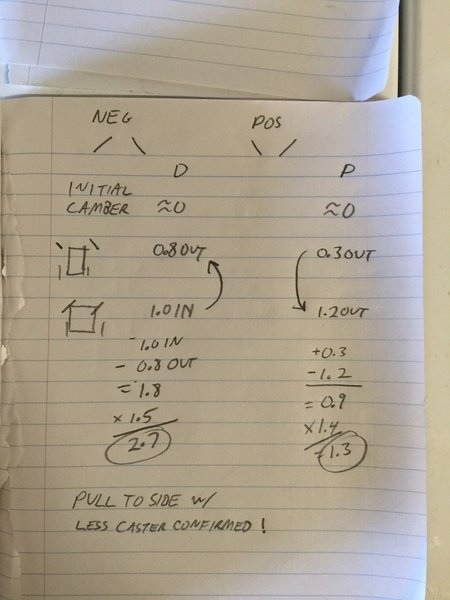 NEG POS
D P
INITIAL
CAMBER ≈0 ≈0
0.8 OUT 0.3 OUT
1.0 IN 1.2 OUT
-1.0 IN +0.3
- 0.8 OUT -1.2
= 1.8 = 0.9
x 1.5 x 1.4
2.7 -1.3
PULL TO SIDE w/
LESS CASTER CONFIRMED!